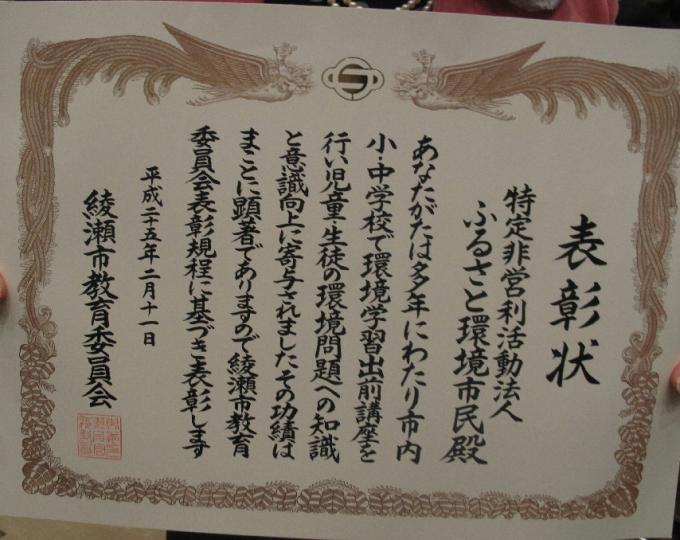 表彰状
特定非営利活動法人
ふるさと環境市民殿
あなたがたは多年にわたり市内
小・中学校で環境学習出前講座を
行い児童・生徒の環境問題への知識
と意識向上に寄与されましたその功績は
まことに顕著でありますので綾瀬市教育
委員会表彰規程に基づき表彰します
平成二十五年二月十一日
綾瀬市教育委員会